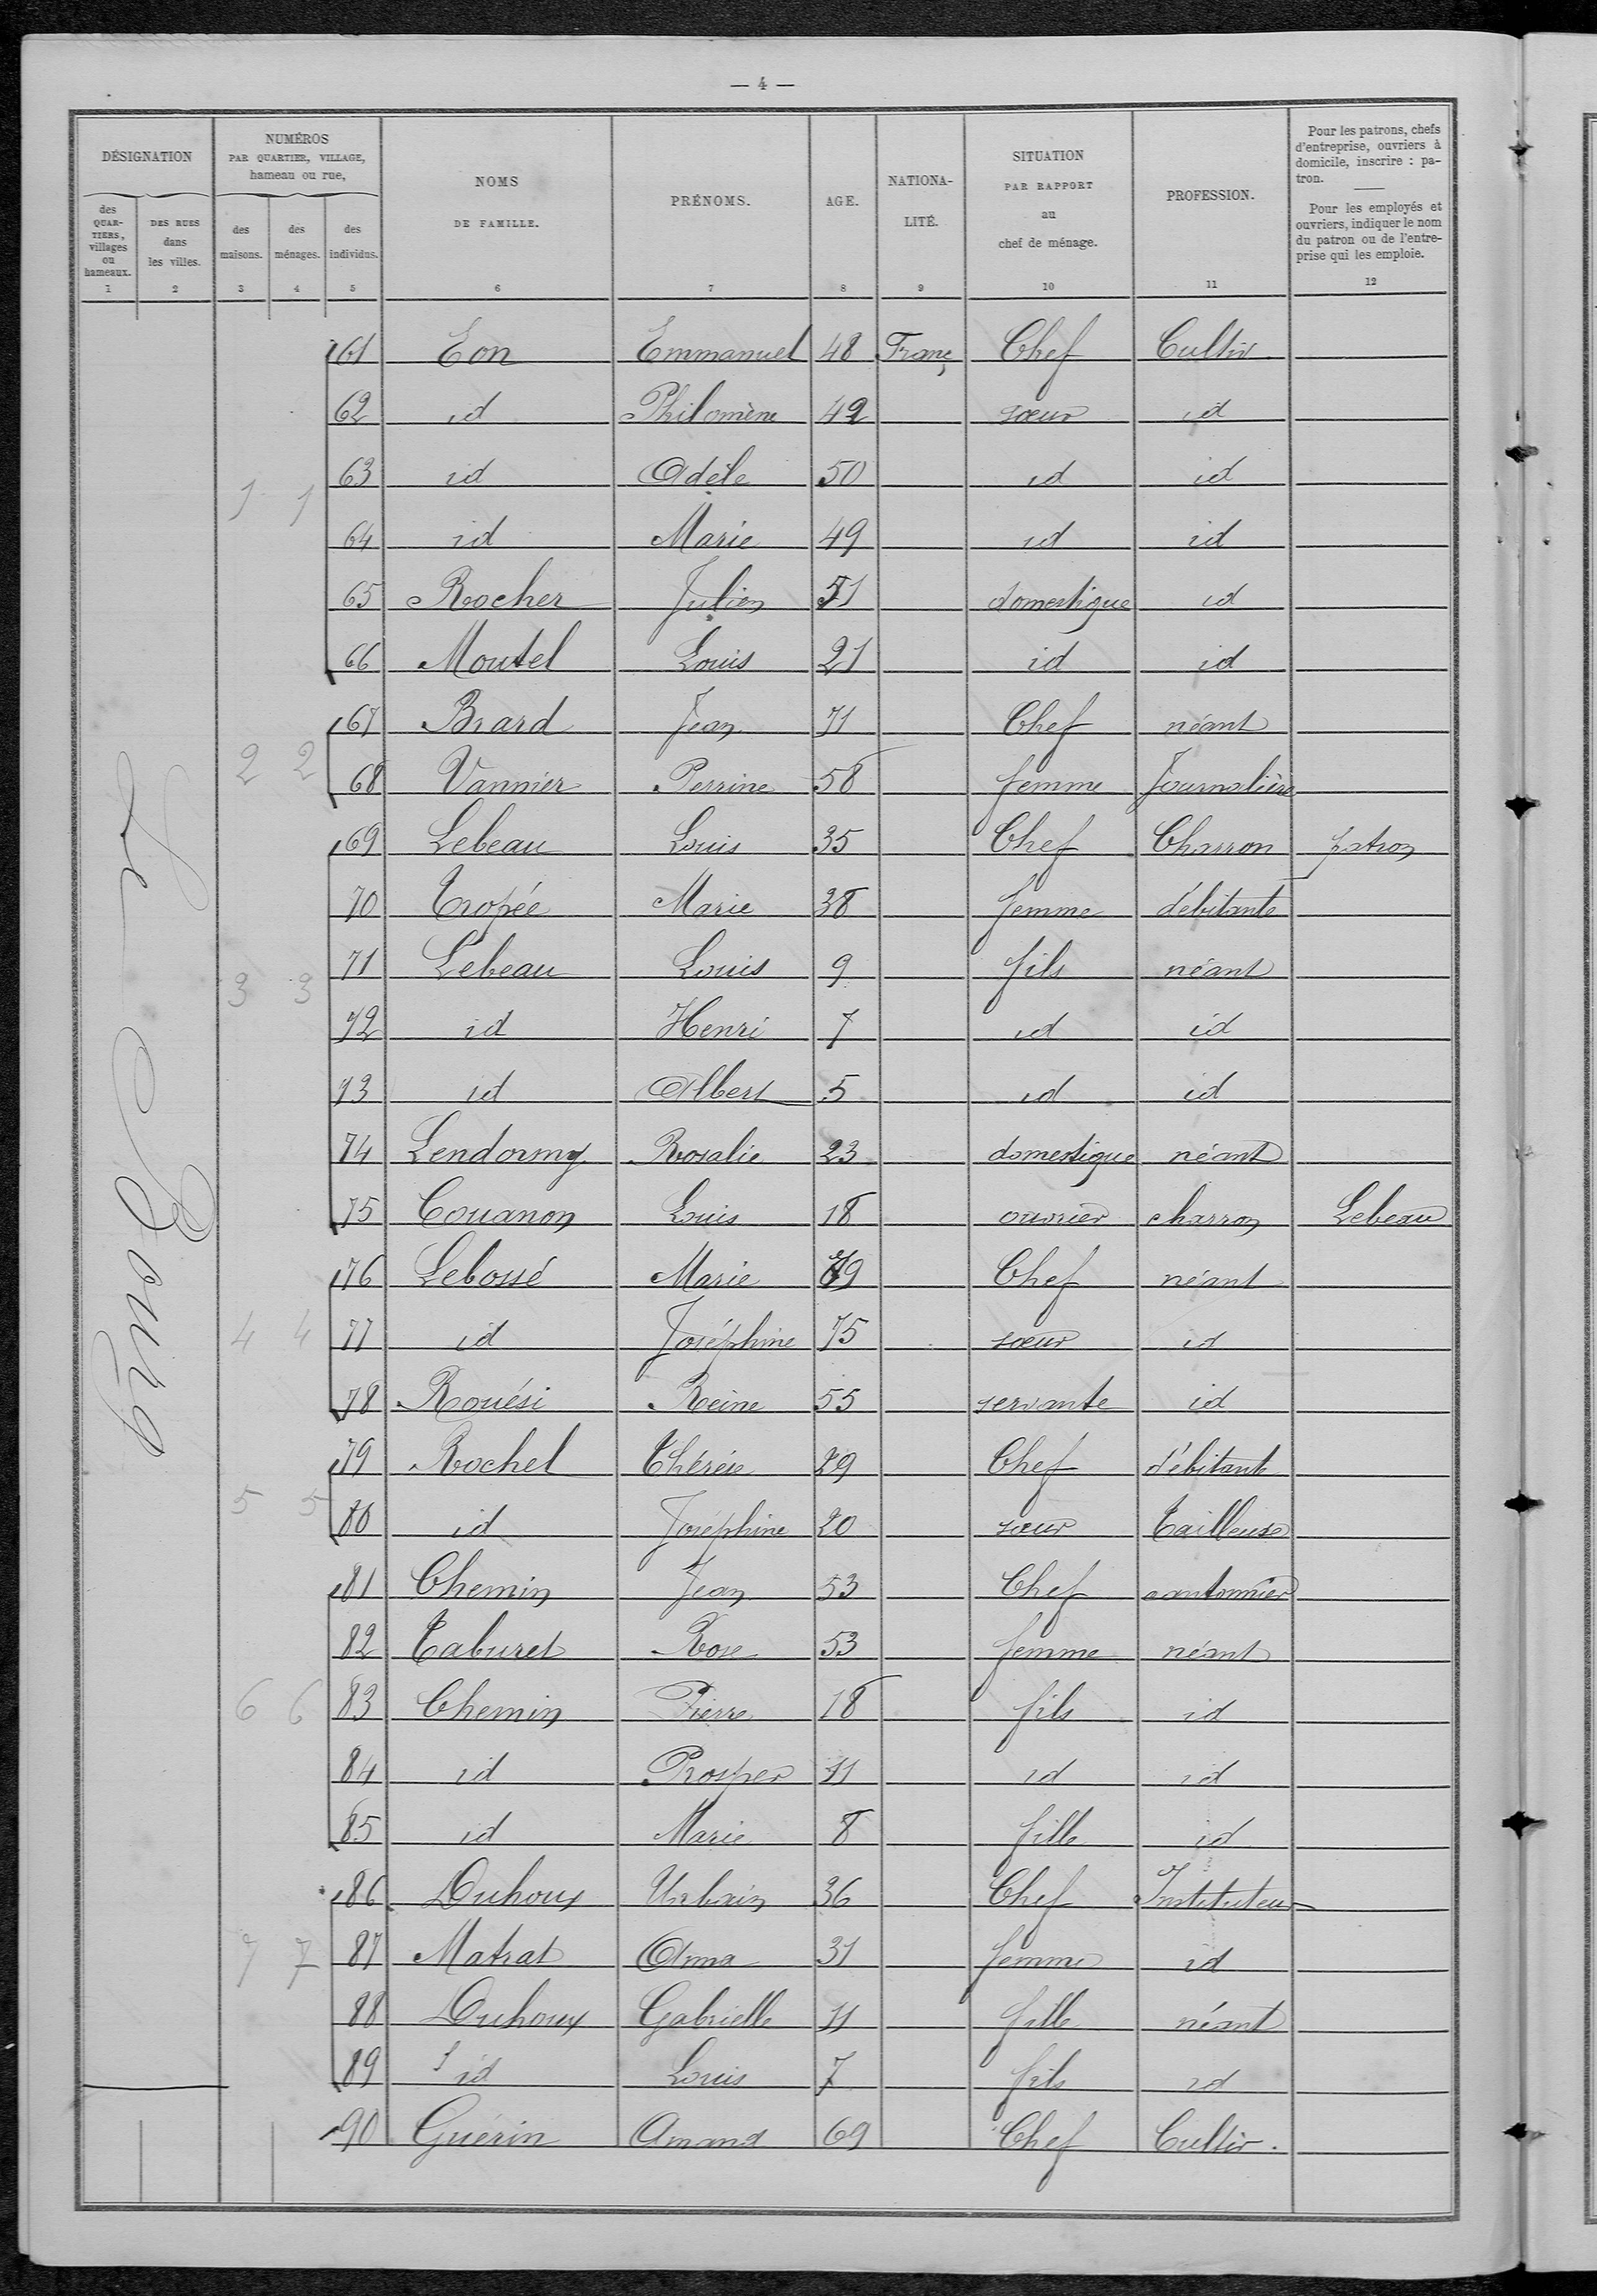 — 4 —
DÉSIGNATION
NUMÉROS
PAR QUARTIER, VILLAGE,
hameau ou rue,
NOMS
DE FAMILLE.
PRÉNOMS.
AGE.
NATIONA-
LITÉ.
SITUATION
PAR RAPPORT
au
chef de ménage.
PROFESSION.
Pour les patrons, chefs
d'entreprise, ouvriers à
domicile, inscrire : pa-
tron.
Pour les employés et
ouvriers, indiquer le nom
du patron ou de l'entre-
prise qui les emploie.
des
QUAR-
TIERS,
villages
ou
hameaux.
DES RUES
dans
les villes.
des
maisons.
des
ménages.
des
individus.
1 2 3 4 5 6 7 8 9 10 11 12
Le Bourg
61 Eon Emmanuel 48 Franç Chef Cultiv.
62 id Philomène 42 sœur id
63 id Adèle 50 id id
1 1
64 id Marie 49 id id
65 Rocher Julien 51 domestique id
66 Moutel Louis 21 id id
67 Brard Jean 71 Chef néant
2 2 68 Vannier Perrine 58 femme Journalière
69 Lebeau Louis 35 Chef Charron patron
70 Tropée Marie 38 femme débitante
71 Lebeau Louis 9 fils néant
3 3
72 id Henri 7 id id
73 id Albert 5 id id
74 Lendormy Rosalie 23 domestique néant
75 Couanon Louis 18 ouvrier charron Lebeau
76 Lebossé Marie 79 Chef néant
4 4 77 id Joséphine 75 sœur id
78 Rouési Reine 55 servante id
79 Rochel Thérèse 29 Chef débitante
5 5
80 id Joséphine 20 sœur Tailleuse
81 Chemin Jean 53 Chef cantonnier
82 Taburet Rose 53 femme néant
6 6 83 Chemin Pierre 18 fils id
84 id Prosper 11 id id
85 id Marie 8 fille id
86 Duhoux Urbain 36 Chef Instituteur
7 7 87 Matrat Anna 31 femme id
88 Duhoux Gabrielle 11 fille néant
89 id Louis 7 fils id
90 Guérin Amand 69 Chef Cultiv.